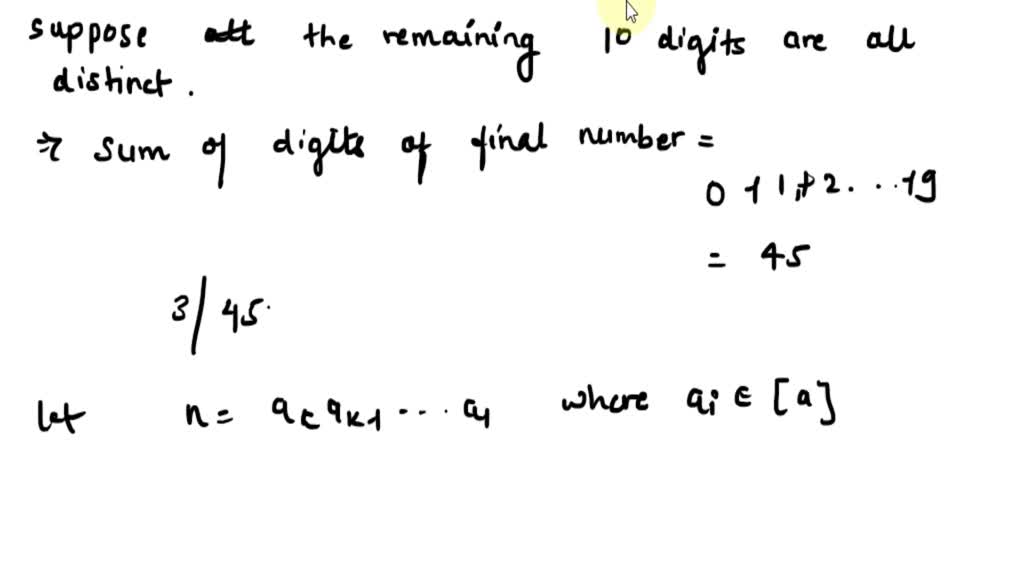 suppose the remaining 10 digits are all
distinct.
⇒ sum of digits of final number =
0 + 1 + 2 . . . + 9
= 45
3 / 45
let n = a_k a_k-1 ... a_1 where a_i ∈ [a]